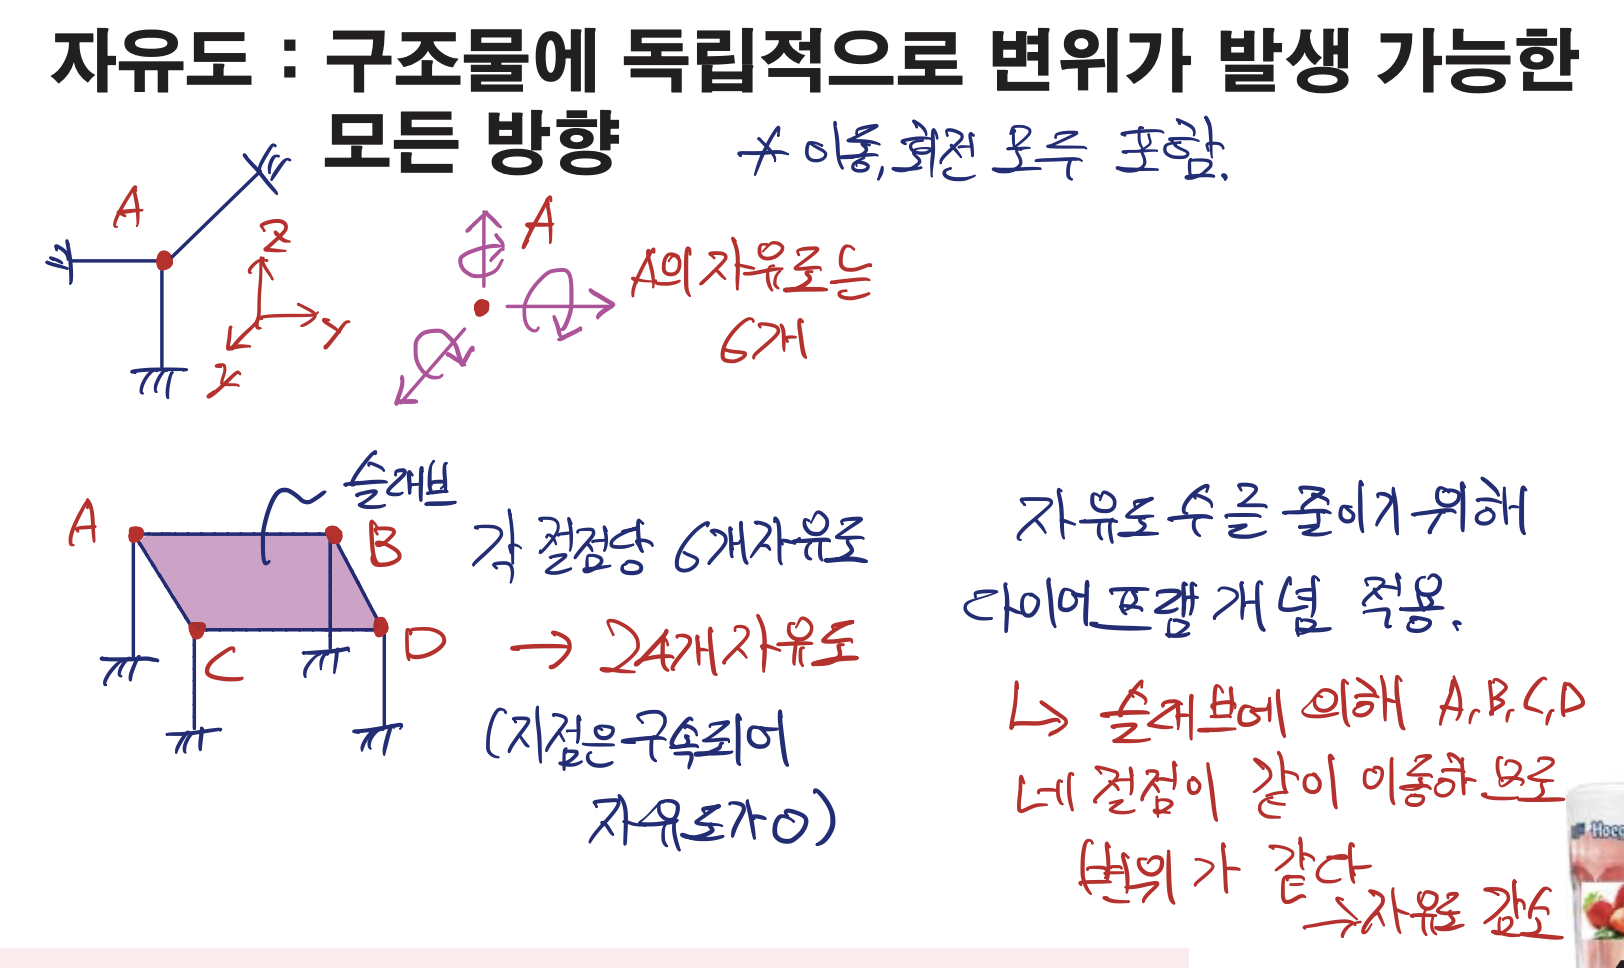 자유도 : 구조물에 독립적으로 변위가 발생 가능한
모든 방향
* 이동, 회전 모두 포함.
A
Z
Y
X
A
A의 자유도는
6개
슬래브
A
B
C
D
각 절점당 6개 자유도
→ 24개 자유도
(지점은 구속되어
자유도가 0)
자유도 수를 줄이기 위해
다이어프램 개념 적용.
↳ 슬래브에 의해 A, B, C, D
네 절점이 같이 이동하므로
변위가 같다
→ 자유도 감소